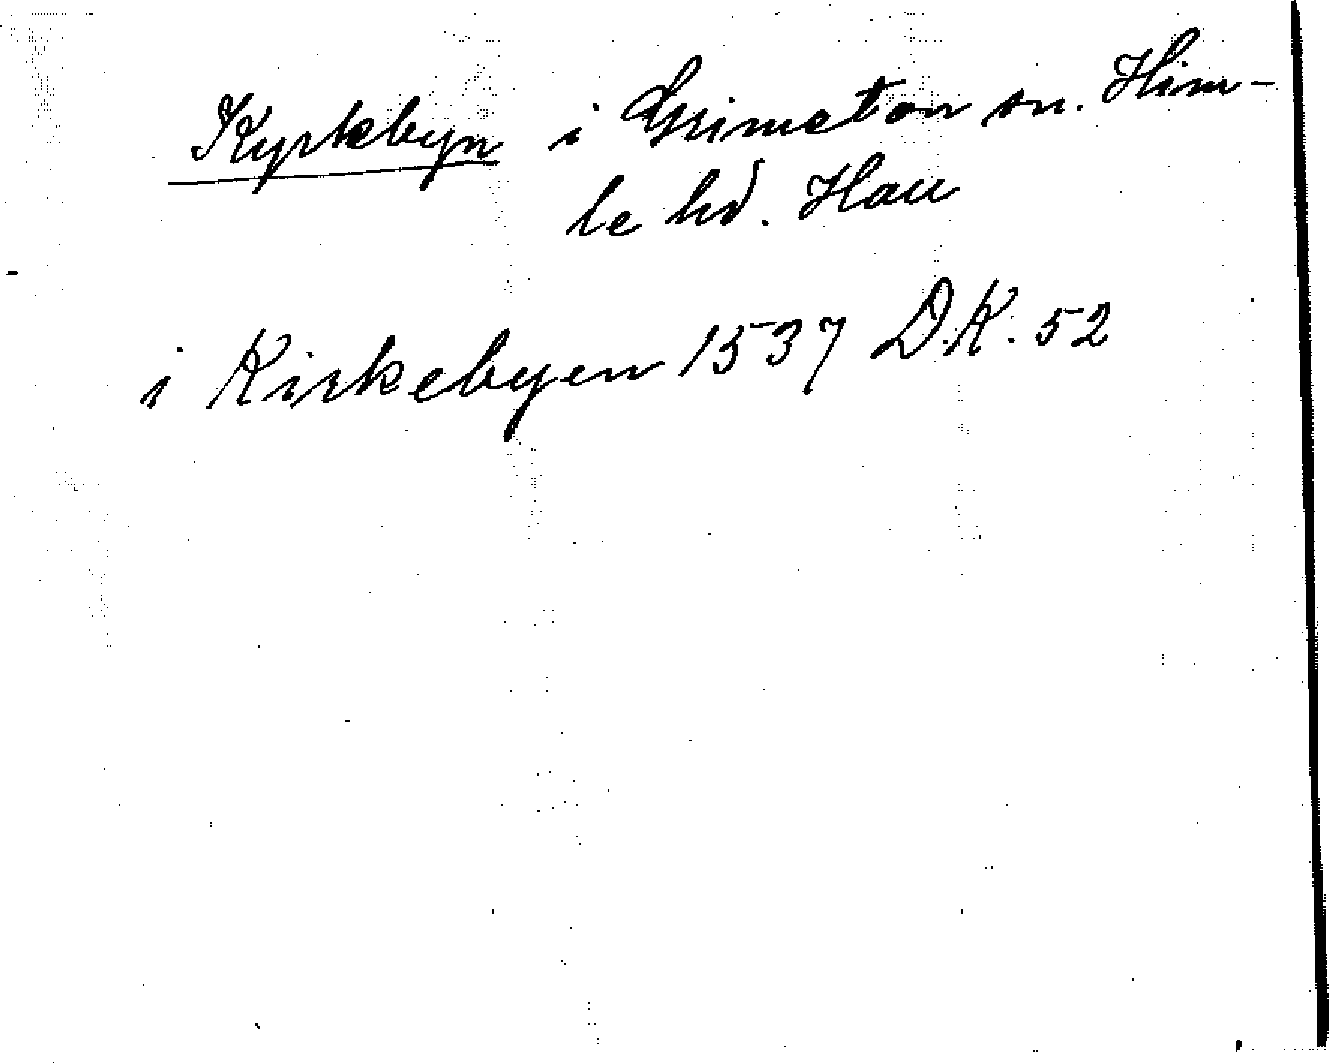 Kyrkbyn i Grimeton sn. Him-
le hd. Hall
i Kirkebyen 1537 D.K. 52